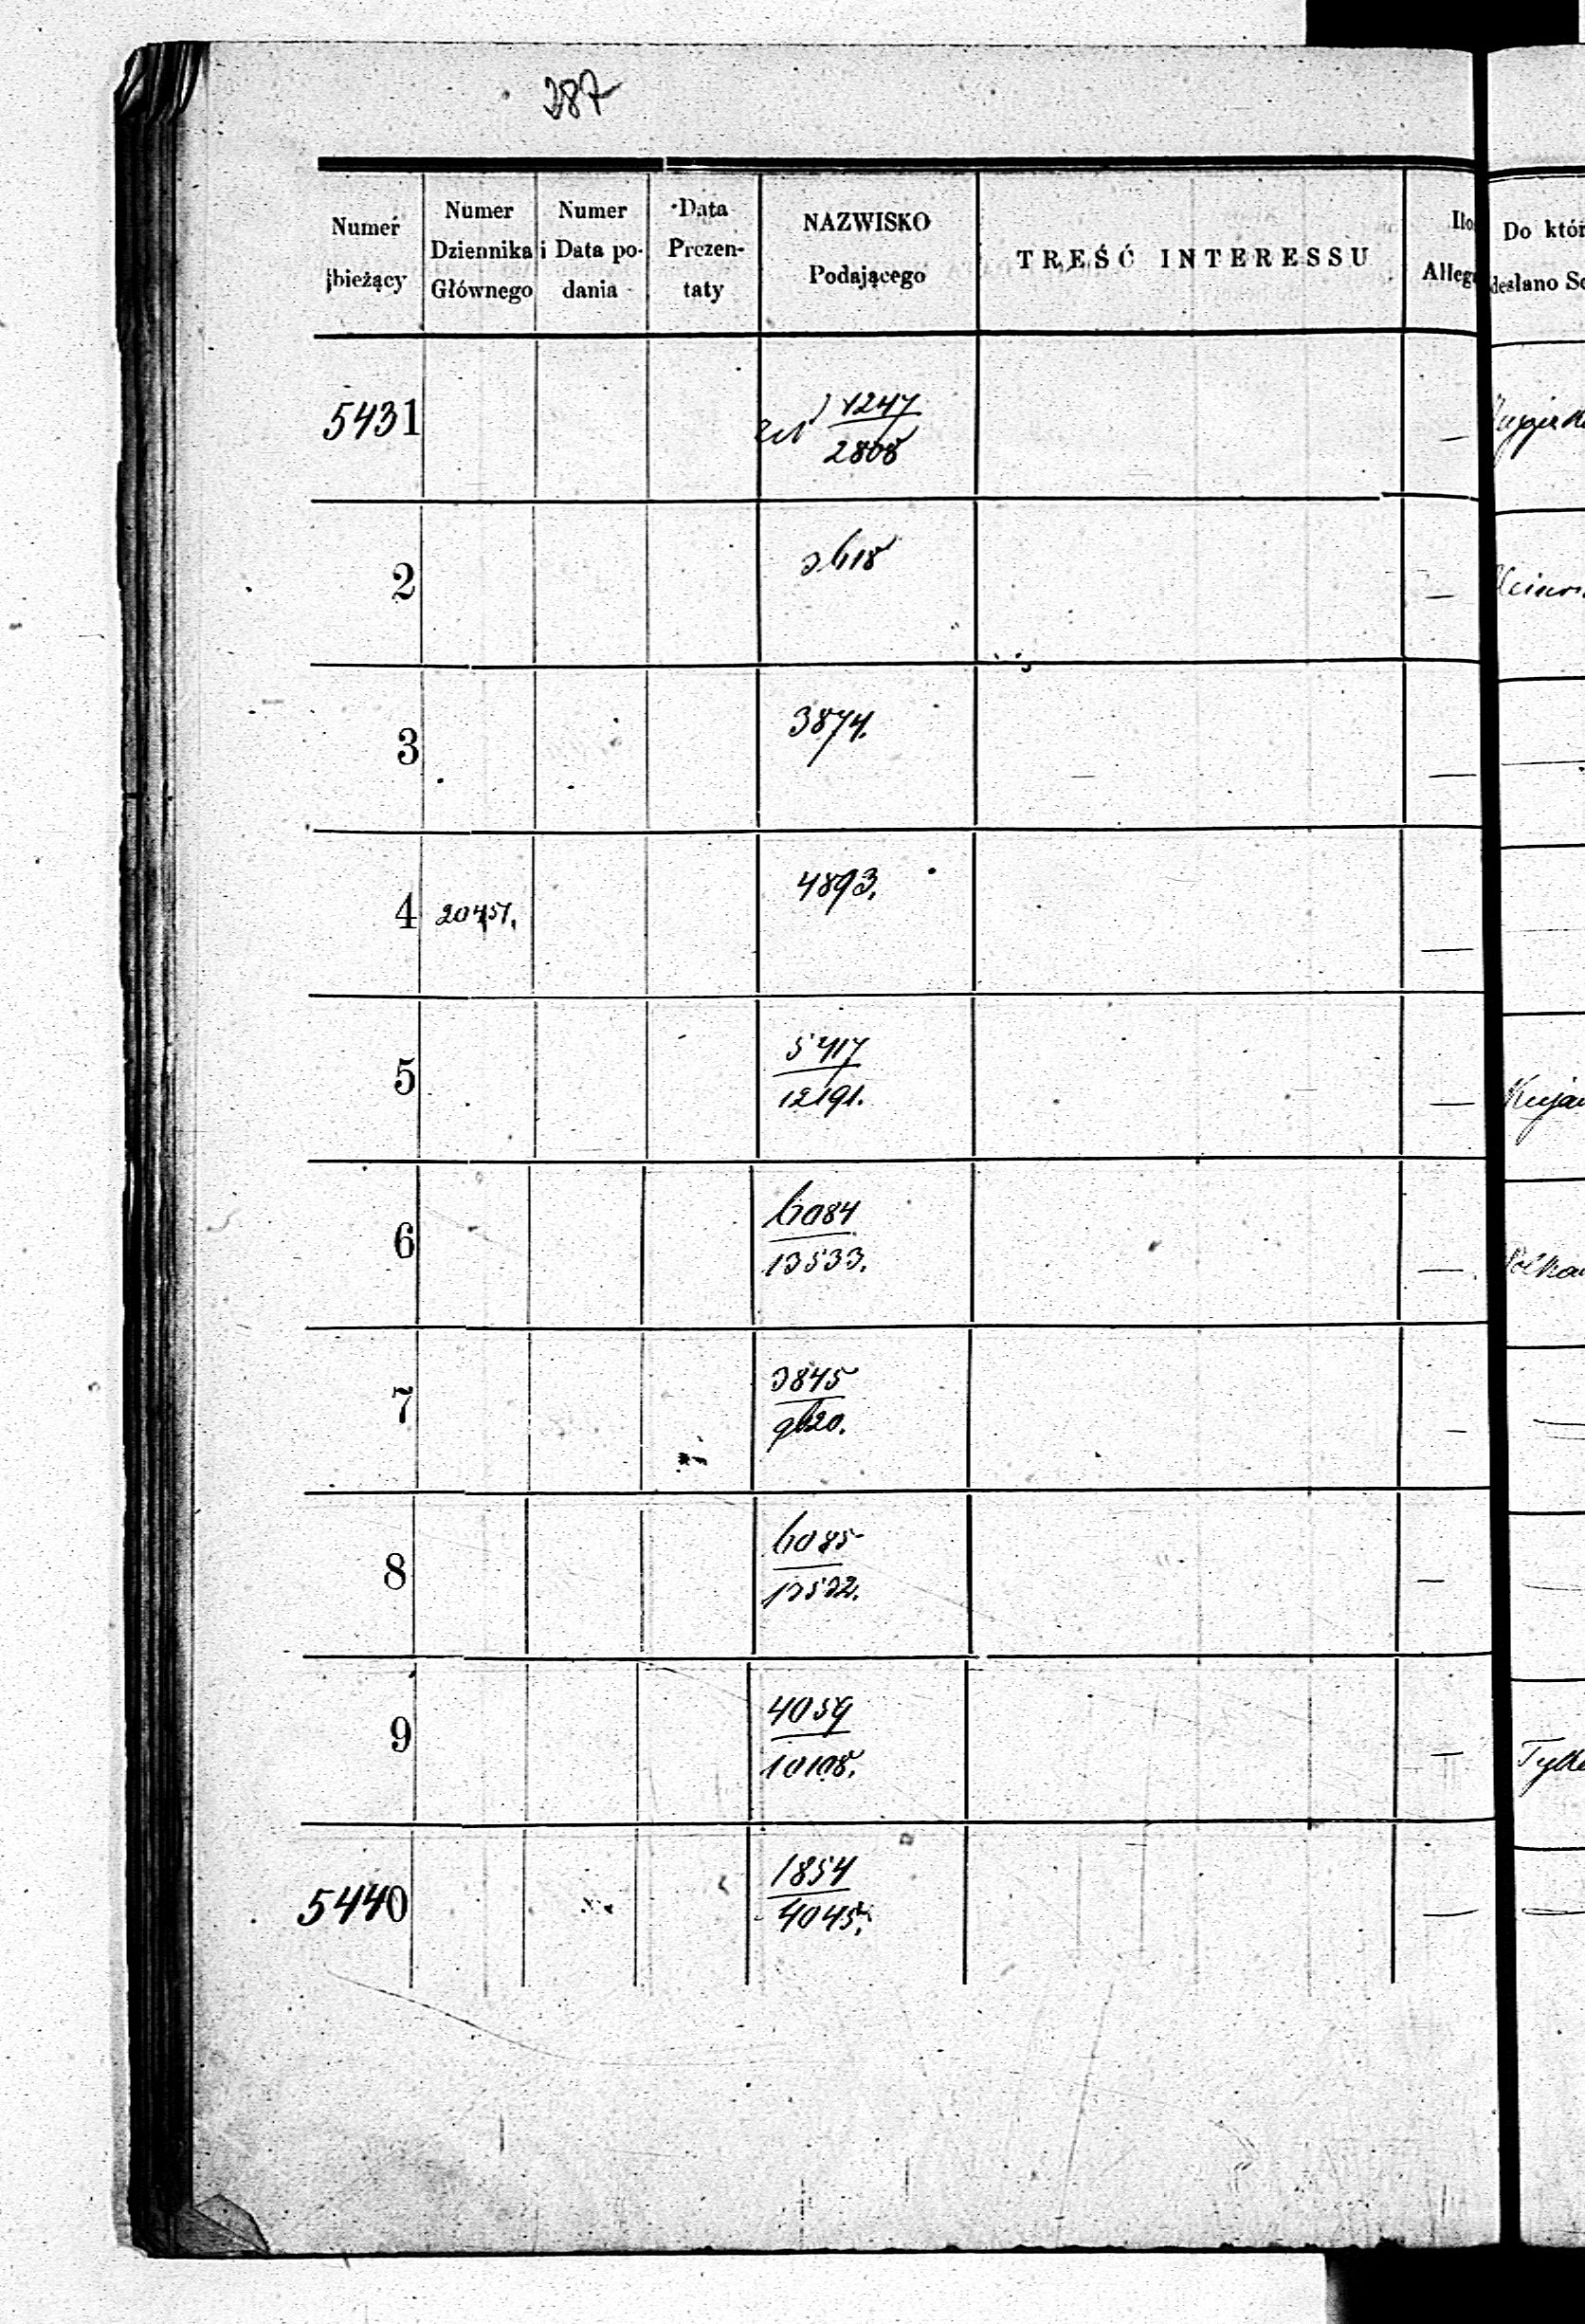 387
Numer bieżący
Numer Dziennika Głównego
Numer i Data podania
Data Prezentaty
NAZWISKO Podającego
TREŚĆ INTERESSU
Ilo
Alleg
Do któr
desłano Se
5431
1247
2808
—
2
3618
—
3
3874.
—
4 20457.
4893.
—
5
5417
12191.
—
Kujaw
6
6084
13533.
—
7
3845
9620.
—
8
6085
13532.
—
9
4059
10108.
—
Tylk
5440
1854
4045.
—